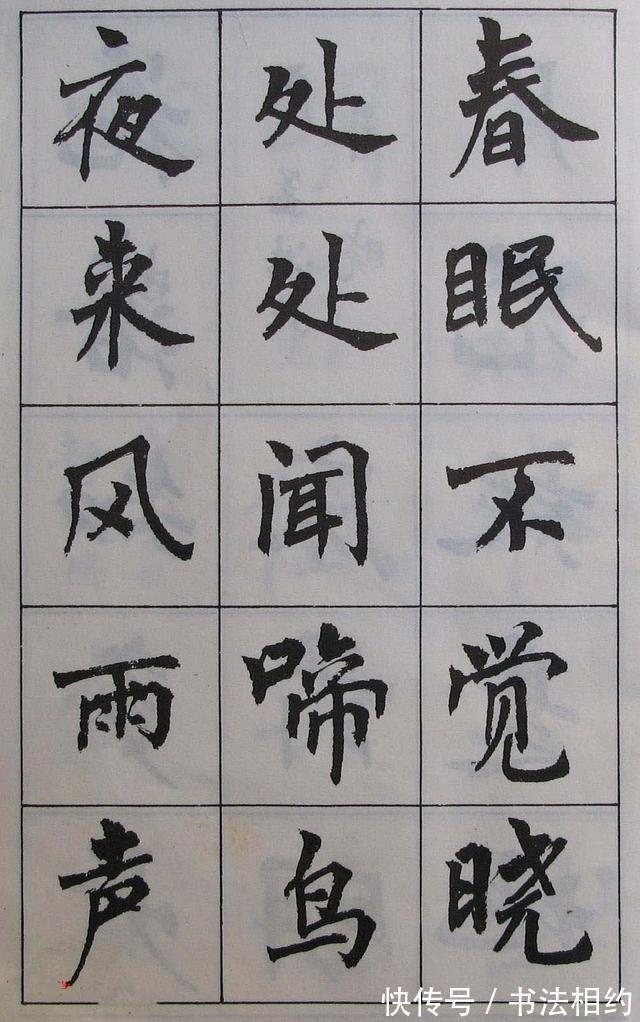 春眠不觉晓
处处闻啼鸟
夜来风雨声
快传号 / 书法相约